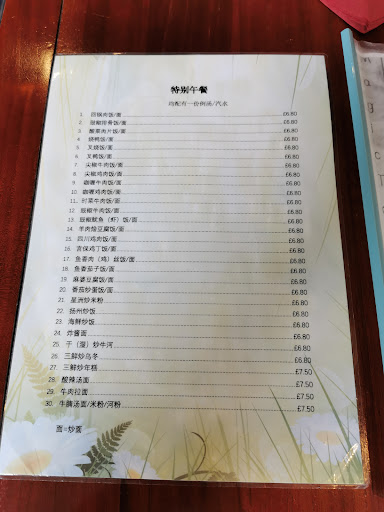 特别午餐
均配有一份例汤/汽水
1. 回锅肉饭/面 £6.80
2. 豉椒排骨饭/面 £6.80
3. 酸菜肉片饭/面 £6.80
4. 烧鸭饭/面 £6.80
5. 叉烧饭/面 £6.80
6. 叉鸭饭/面 £6.80
7. 尖椒牛肉饭/面 £6.80
8. 尖椒鸡肉饭/面 £6.80
9. 咖喱牛肉饭/面 £6.80
10. 咖喱鸡肉饭/面 £6.80
11. 时菜牛肉饭/面 £6.80
12. 豉椒牛肉饭/面 £6.80
13. 豉椒鱿鱼（虾）饭/面 £6.80
14. 羊肉烩豆腐饭/面 £6.80
15. 四川鸡肉饭/面 £6.80
16. 宫保鸡丁饭/面 £6.80
17. 鱼香肉（鸡）丝饭/面 £6.80
18. 鱼香茄子饭/面 £6.80
19. 麻婆豆腐饭/面 £6.80
20. 番茄炒蛋饭/面 £6.80
21. 星洲炒米粉 £6.80
22. 扬州炒饭 £6.80
23. 海鲜炒饭 £6.80
24. 炸酱面 £6.80
25. 干（湿）炒牛河 £6.80
26. 三鲜炒乌冬 £6.80
27. 三鲜炒年糕 £7.50
28. 酸辣汤面 £7.50
29. 牛肉拉面 £7.50
30. 牛腩汤面/米粉/河粉 £7.50
面=炒面